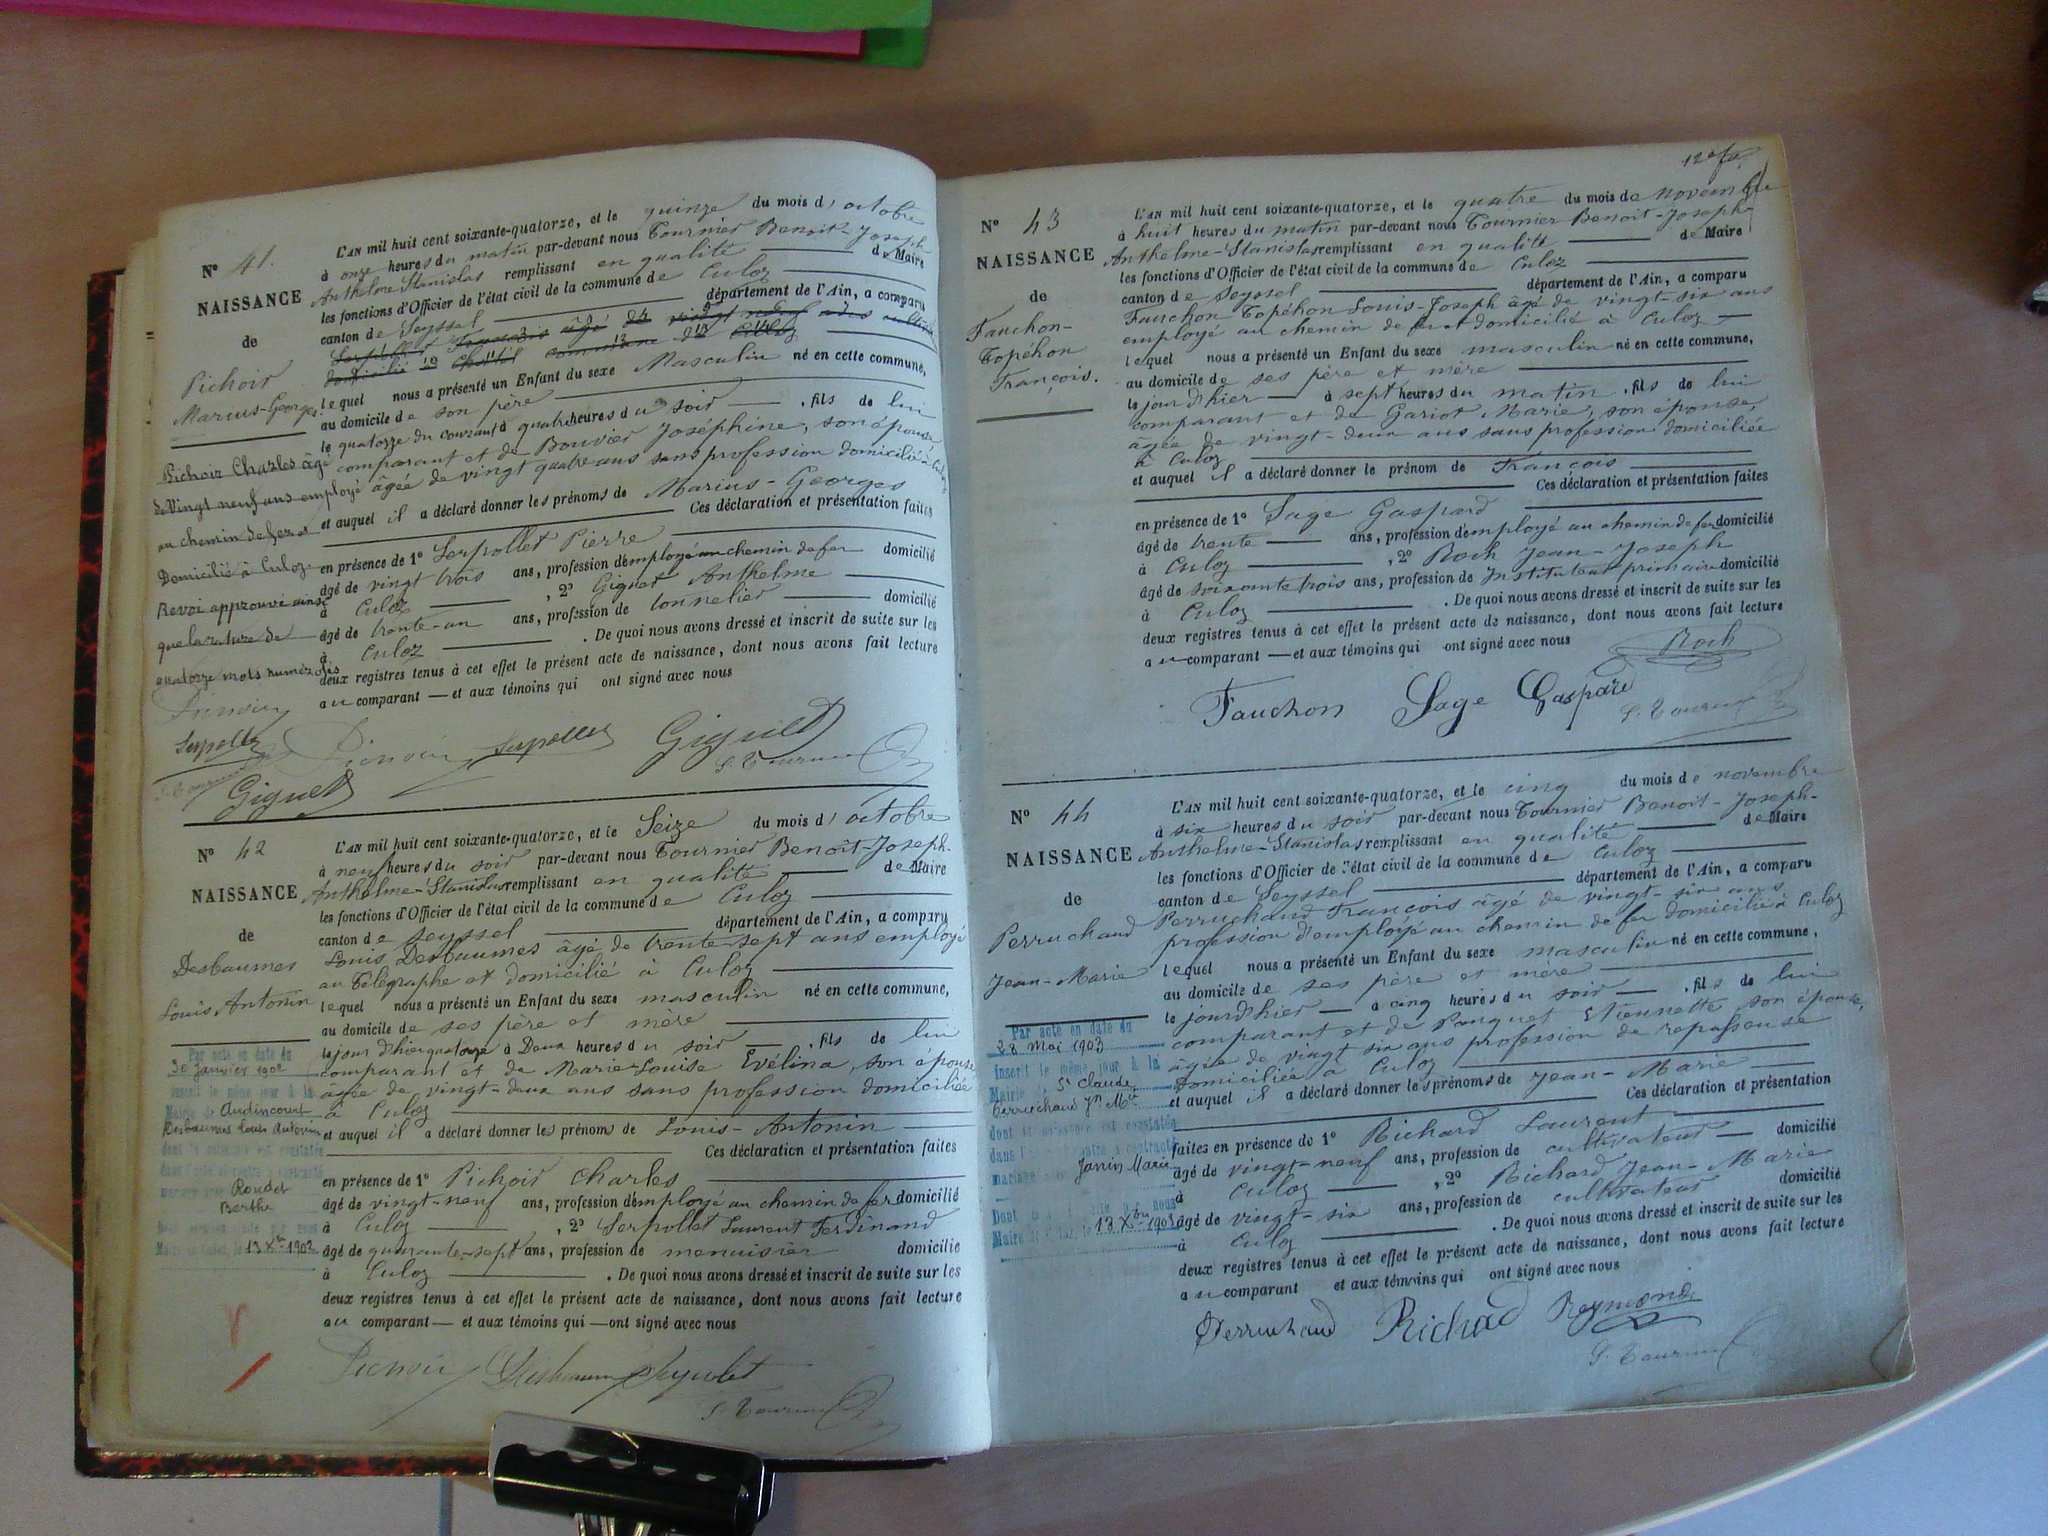 N° 41.
NAISSANCE
de
Pichoir
Marius-Georges.
Pichoir Charles âgé
de Vingt neuf ans employé
au chemin de fer et
Domicilié à Culoz
Revoi approuvé ainsi
que la rature de
quatorze mots numérotés
Serpollet
Giguet
L'AN mil huit cent soixante-quatorze, et le quinze du mois d'octobre
à onze heures du matin par-devant nous Tournier Benoit Joseph
Anthelme Stanislas remplissant en qualité de Maire
les fonctions d'Officier de l'état civil de la commune de Culoz
canton de Seyssel département de l'Ain, a comparu
Serpollet François âgé de vingt neuf ans
domicilié commune de Culoz
lequel nous a présenté un Enfant du sexe Masculin né en cette commune,
au domicile de son père
le quatorze du courant à quatre heures du soir, fils de lui
comparant et de Bouvier Joséphine, son épouse,
âgée de vingt quatre ans sans profession domiciliée à Culoz
et auquel il a déclaré donner les prénoms de Marius-Georges
Ces déclaration et présentation faites
en présence de 1° Serpollet Pierre
âgé de vingt trois ans, profession d'employé au chemin de fer domicilié
à Culoz, 2° Giguet Anthelme
âgé de trente-un ans, profession de tonnelier domicilié
à Culoz. De quoi nous avons dressé et inscrit de suite sur les
deux registres tenus à cet effet le présent acte de naissance, dont nous avons fait lecture
au comparant — et aux témoins qui ont signé avec nous
Pichoir Serpollet Giguet
S. Tournier
N° 42
NAISSANCE
de
Desbaumes
Louis Antonin
Par acte en date du
30 Janvier 1902
inscrit le même jour à la
Mairie de Audincourt
Desbaumes Louis Antonin
dont la naissance est constatée
dans l'acte ci-contre a contracté
mariage avec Roudet
Berthe
13 Xbre 1902
L'AN mil huit cent soixante-quatorze, et le Seize du mois d'octobre
à neuf heures du soir par-devant nous Tournier Benoit-Joseph-
Anthelme-Stanislas remplissant en qualité de Maire
les fonctions d'Officier de l'état civil de la commune de Culoz
canton de Seyssel département de l'Ain, a comparu
Louis Desbaumes âgé de trente-sept ans employé
au Télégraphe et domicilié à Culoz
lequel nous a présenté un Enfant du sexe masculin né en cette commune,
au domicile de ses père et mère
le jour d'hier quatorze à Deux heures du soir, fils de lui
comparant et de Marie-Louise Evélina, son épouse
âgée de vingt-deux ans sans profession domiciliée
à Culoz
et auquel il a déclaré donner les prénoms de Louis-Antonin
Ces déclaration et présentation faites
en présence de 1° Pichoir Charles
âgé de vingt-neuf ans, profession d'employé au chemin de fer domicilié
à Culoz, 2° Serpollet Laurent Ferdinand
âgé de quarante-sept ans, profession de menuisier domicilié
à Culoz. De quoi nous avons dressé et inscrit de suite sur les
deux registres tenus à cet effet le présent acte de naissance, dont nous avons fait lecture
au comparant — et aux témoins qui — ont signé avec nous
Pichoir Desbaumes
S. Tournier
N° 43
NAISSANCE
de
Fauchon-
Topéhon
François.
L'AN mil huit cent soixante-quatorze, et le quatre du mois de novembre
à huit heures du matin par-devant nous Tournier Benoit-Joseph-
Anthelme-Stanislas remplissant en qualité de Maire
les fonctions d'Officier de l'état civil de la commune de Culoz
canton de Seyssel département de l'Ain, a comparu
Fauchon Topéhon Louis-Joseph âgé de vingt-six ans
employé au chemin de fer et domicilié à Culoz
lequel nous a présenté un Enfant du sexe masculin né en cette commune,
au domicile de ses père et mère
le jour d'hier — à sept heures du matin, fils de lui
comparant et de Gariot Marie, son épouse,
âgée de vingt-deux ans sans profession domiciliée
à Culoz
et auquel il a déclaré donner le prénom de François
Ces déclaration et présentation faites
en présence de 1° Sage Gaspard
âgé de trente — ans, profession d'employé au chemin de fer domicilié
à Culoz, 2° Roch Jean-Joseph
âgé de soixante trois ans, profession de Instituteur primaire domicilié
à Culoz. De quoi nous avons dressé et inscrit de suite sur les
deux registres tenus à cet effet le présent acte de naissance, dont nous avons fait lecture
au comparant — et aux témoins qui ont signé avec nous
Roch
Fauchon Sage Gaspard
S. Tournier
N° 44
NAISSANCE
de
Perruchaud
Jean-Marie
Par acte en date du
28 Mai 1903
inscrit le même jour à la
Mairie de St Claude
Perruchaud Jn Mie
dont la naissance est constatée
dans l'acte ci-contre a contracté
mariage avec Janin Marie
13 Xbre 1903
L'AN mil huit cent soixante-quatorze, et le cinq du mois de novembre
à six heures du soir par-devant nous Tournier Benoit-Joseph-
Anthelme-Stanislas remplissant en qualité de Maire
les fonctions d'Officier de l'état civil de la commune de Culoz
canton de Seyssel département de l'Ain, a comparu
Perruchaud François âgé de vingt-six ans
profession d'employé au chemin de fer domicilié à Culoz
lequel nous a présenté un Enfant du sexe masculin né en cette commune,
au domicile de ses père et mère
le jour d'hier — à cinq heures du soir —, fils de lui
comparant et de Ponquet Etiennette son épouse,
âgée de vingt six ans profession de repasseuse
domiciliée à Culoz
et auquel il a déclaré donner les prénoms de Jean-Marie
Ces déclaration et présentation
faites en présence de 1° Richard Laurent
âgé de vingt-neuf ans, profession de cultivateur — domicilié
à Culoz, 2° Richard Jean-Marie
âgé de vingt-six ans, profession de cultivateur domicilié
à Culoz. De quoi nous avons dressé et inscrit de suite sur les
deux registres tenus à cet effet le présent acte de naissance, dont nous avons fait lecture
au comparant et aux témoins qui ont signé avec nous
Perruchaud Richard Reymond
S. Tournier